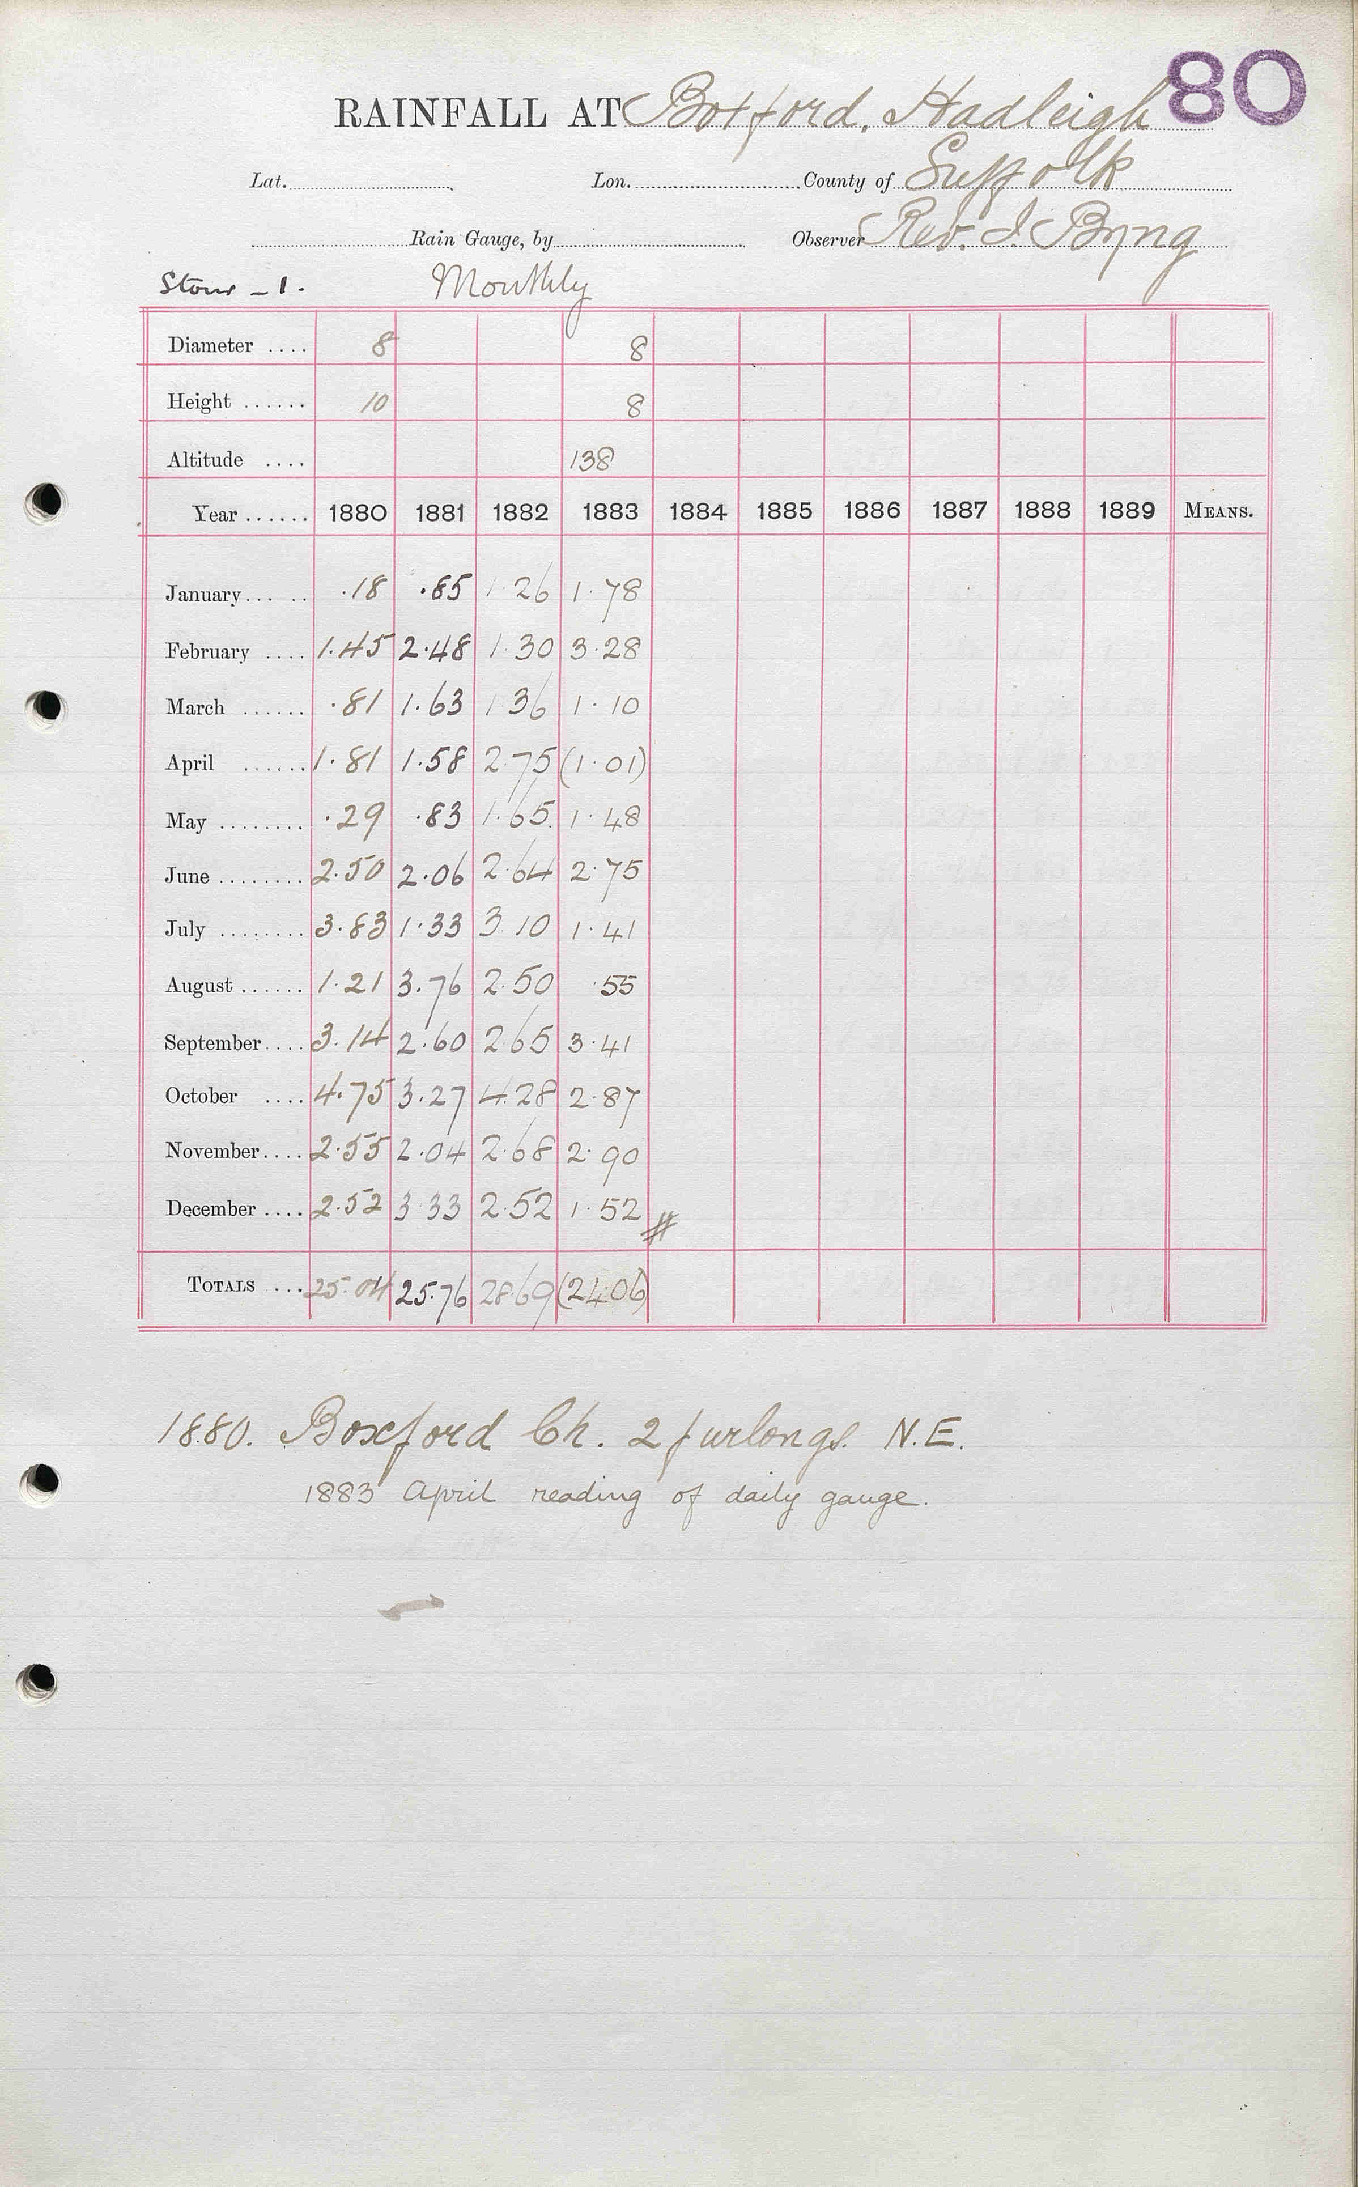 80
RAINFALL AT Boxford, Hadleigh
Lat. Lon. County of Suffolk
Rain Gauge, by Observer Rev. J. Byng
Stour - 1. Monthly
Diameter .... 8 8
Height ...... 10 8
Altitude .... 138
Year ...... 1880 1881 1882 1883 1884 1885 1886 1887 1888 1889 MEANS.
January... .. .18 .85 1.26 1.78
February .... 1.45 2.48 1.30 3.28
March ...... .81 1.63 1.36 1.10
April ...... 1.81 1.58 2.75 (1.01)
May ........ .29 .83 1.65 1.48
June ........ 2.50 2.06 2.64 2.75
July ........ 3.83 1.33 3.10 1.41
August ...... 1.21 3.76 2.50 .55
September.... 3.14 2.60 2.65 3.41
October .... 4.75 3.27 4.28 2.87
November.... 2.55 2.04 2.68 2.90
December .... 2.52 3.33 2.52 1.52 #
TOTALS ... 25.04 25.76 28.69 (24.06)
1880. Boxford Ch. 2 furlongs N.E.
1883 April reading of daily gauge.